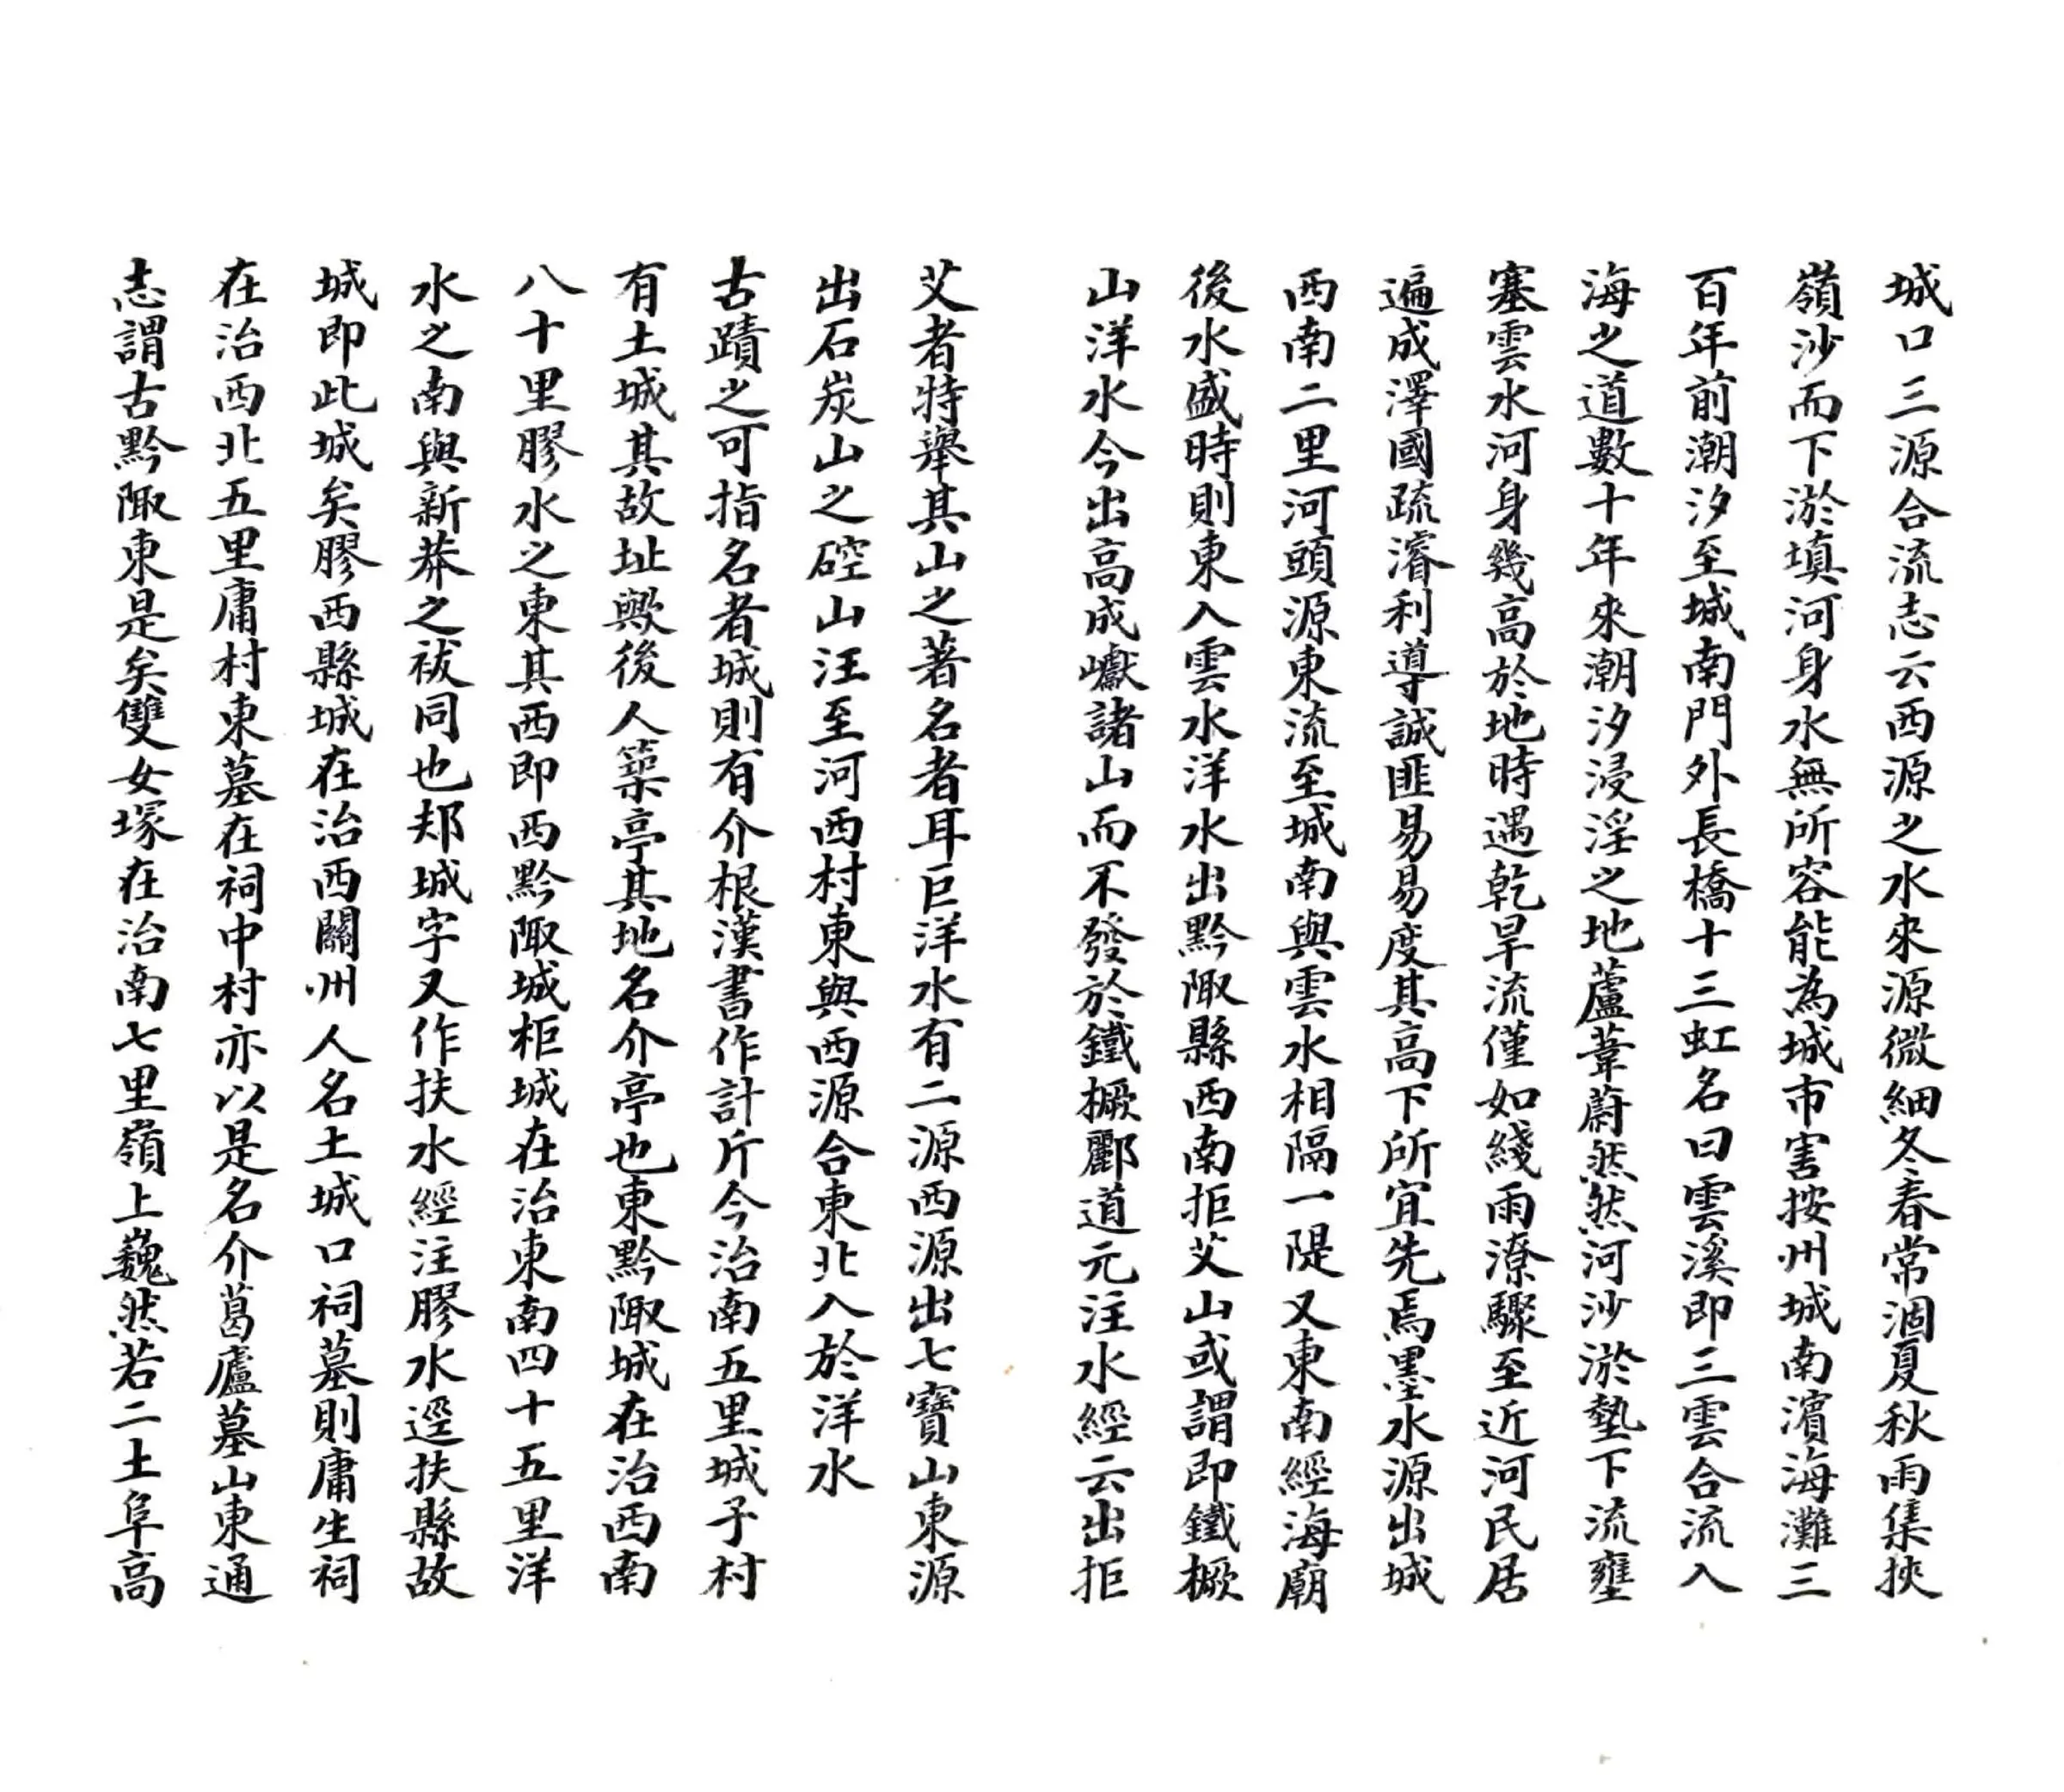 城口三源合流志云西源之水來源微細冬春常涸夏秋雨集挾
嶺沙而下淤填河身水無所容能為城市害按州城南濱海灘三
百年前潮汐至城南門外長橋十三虹名曰雲溪即三雲合流入
海之道數十年來潮汐浸淫之地蘆葦蔚然然河沙淤墊下流壅
塞雲水河身幾高於地時遇乾旱流僅如綫雨潦驟至近河民居
遍成澤國疏濬利導誠匪易易度其高下所宜先焉墨水源出城
西南二里河頭源東流至城南與雲水相隔一隄又東南經海廟
後水盛時則東入雲水洋水出黔陬縣西南拒艾山或謂即鐵橛
山洋水今出高成巘諸山而不發於鐵橛酈道元注水經云出拒
艾者特舉其山之著名者耳巨洋水有二源西源出七寶山東源
出石炭山之硿山汪至河西村東與西源合東北入於洋水
古蹟之可指名者城則有介根漢書作計斤今治南五里城子村
有土城其故址歟後人築亭其地名介亭也東黔陬城在治西南
八十里膠水之東其西即西黔陬城柜城在治東南四十五里洋
水之南與新莽之祓同也郟城字又作扶水經注膠水逕扶縣故
城即此城矣膠西縣城在治西關州人名土城口祠墓則庸生祠
在治西北五里庸村東墓在祠中村亦以是名介葛廬墓山東通
志謂古黔陬東是矣雙女塚在治南七里嶺上巍然若二土阜高